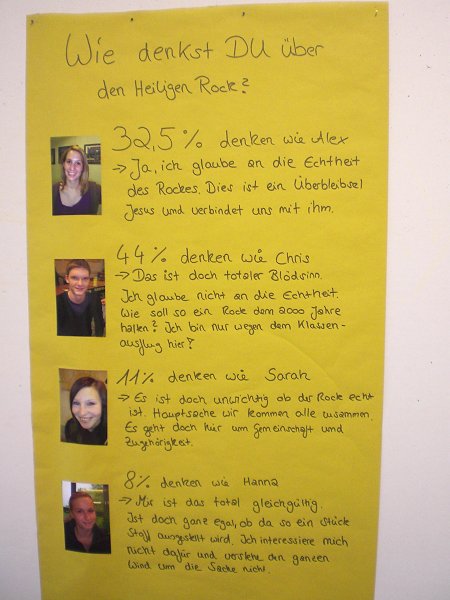 Wie denkst DU über
den Heiligen Rock?
32,5% denken wie Alex
→ Ja, ich glaube an die Echtheit
des Rockes. Dies ist ein Überbleibsel
Jesus und verbindet uns mit ihm.
44% denken wie Chris
→ Das ist doch totaler Blödsinn.
Ich glaube nicht an die Echtheit.
Wie soll so ein Rock denn 2000 Jahre
halten? Ich bin nur wegen dem Klassen-
ausflug hier!
11% denken wie Sarah
→ Es ist doch unwichtig ob der Rock echt
ist. Hauptsache wir kommen alle zusammen.
Es geht doch hier um Gemeinschaft und
Zugehörigkeit.
8% denken wie Hanna
→ Mir ist das total gleichgültig.
Ist doch ganz egal, ob da so ein Stück
Stoff ausgestellt wird. Ich interessiere mich
nicht dafür und verstehe den ganzen
Wind um die Sache nicht.